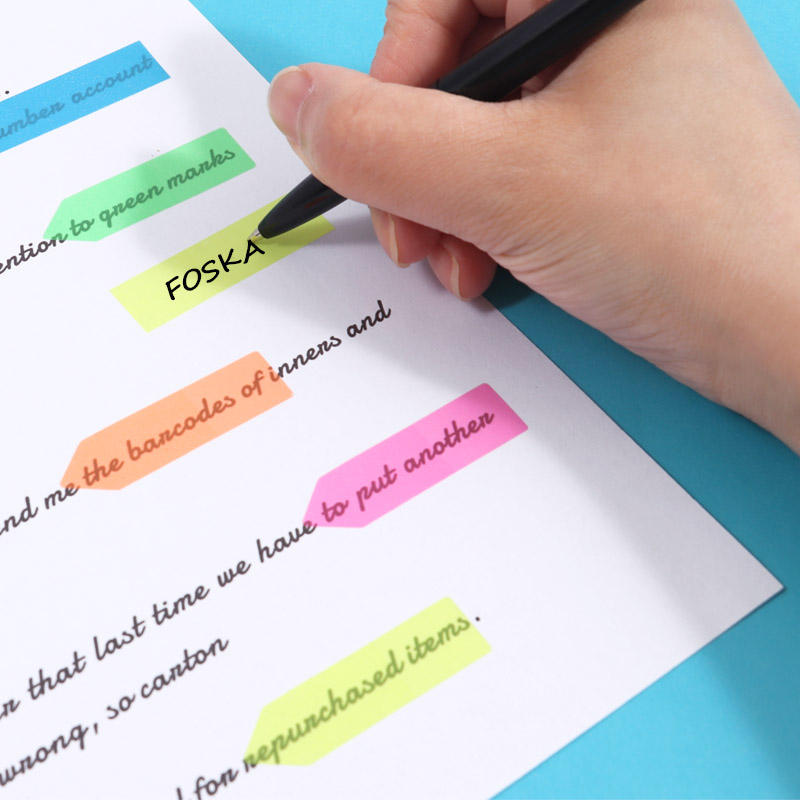 .
umber account
ention to green marks
FOSKA
nd me the barcodes of inners and
r that last time we have to put another
wrong, so carton
for repurchased items.